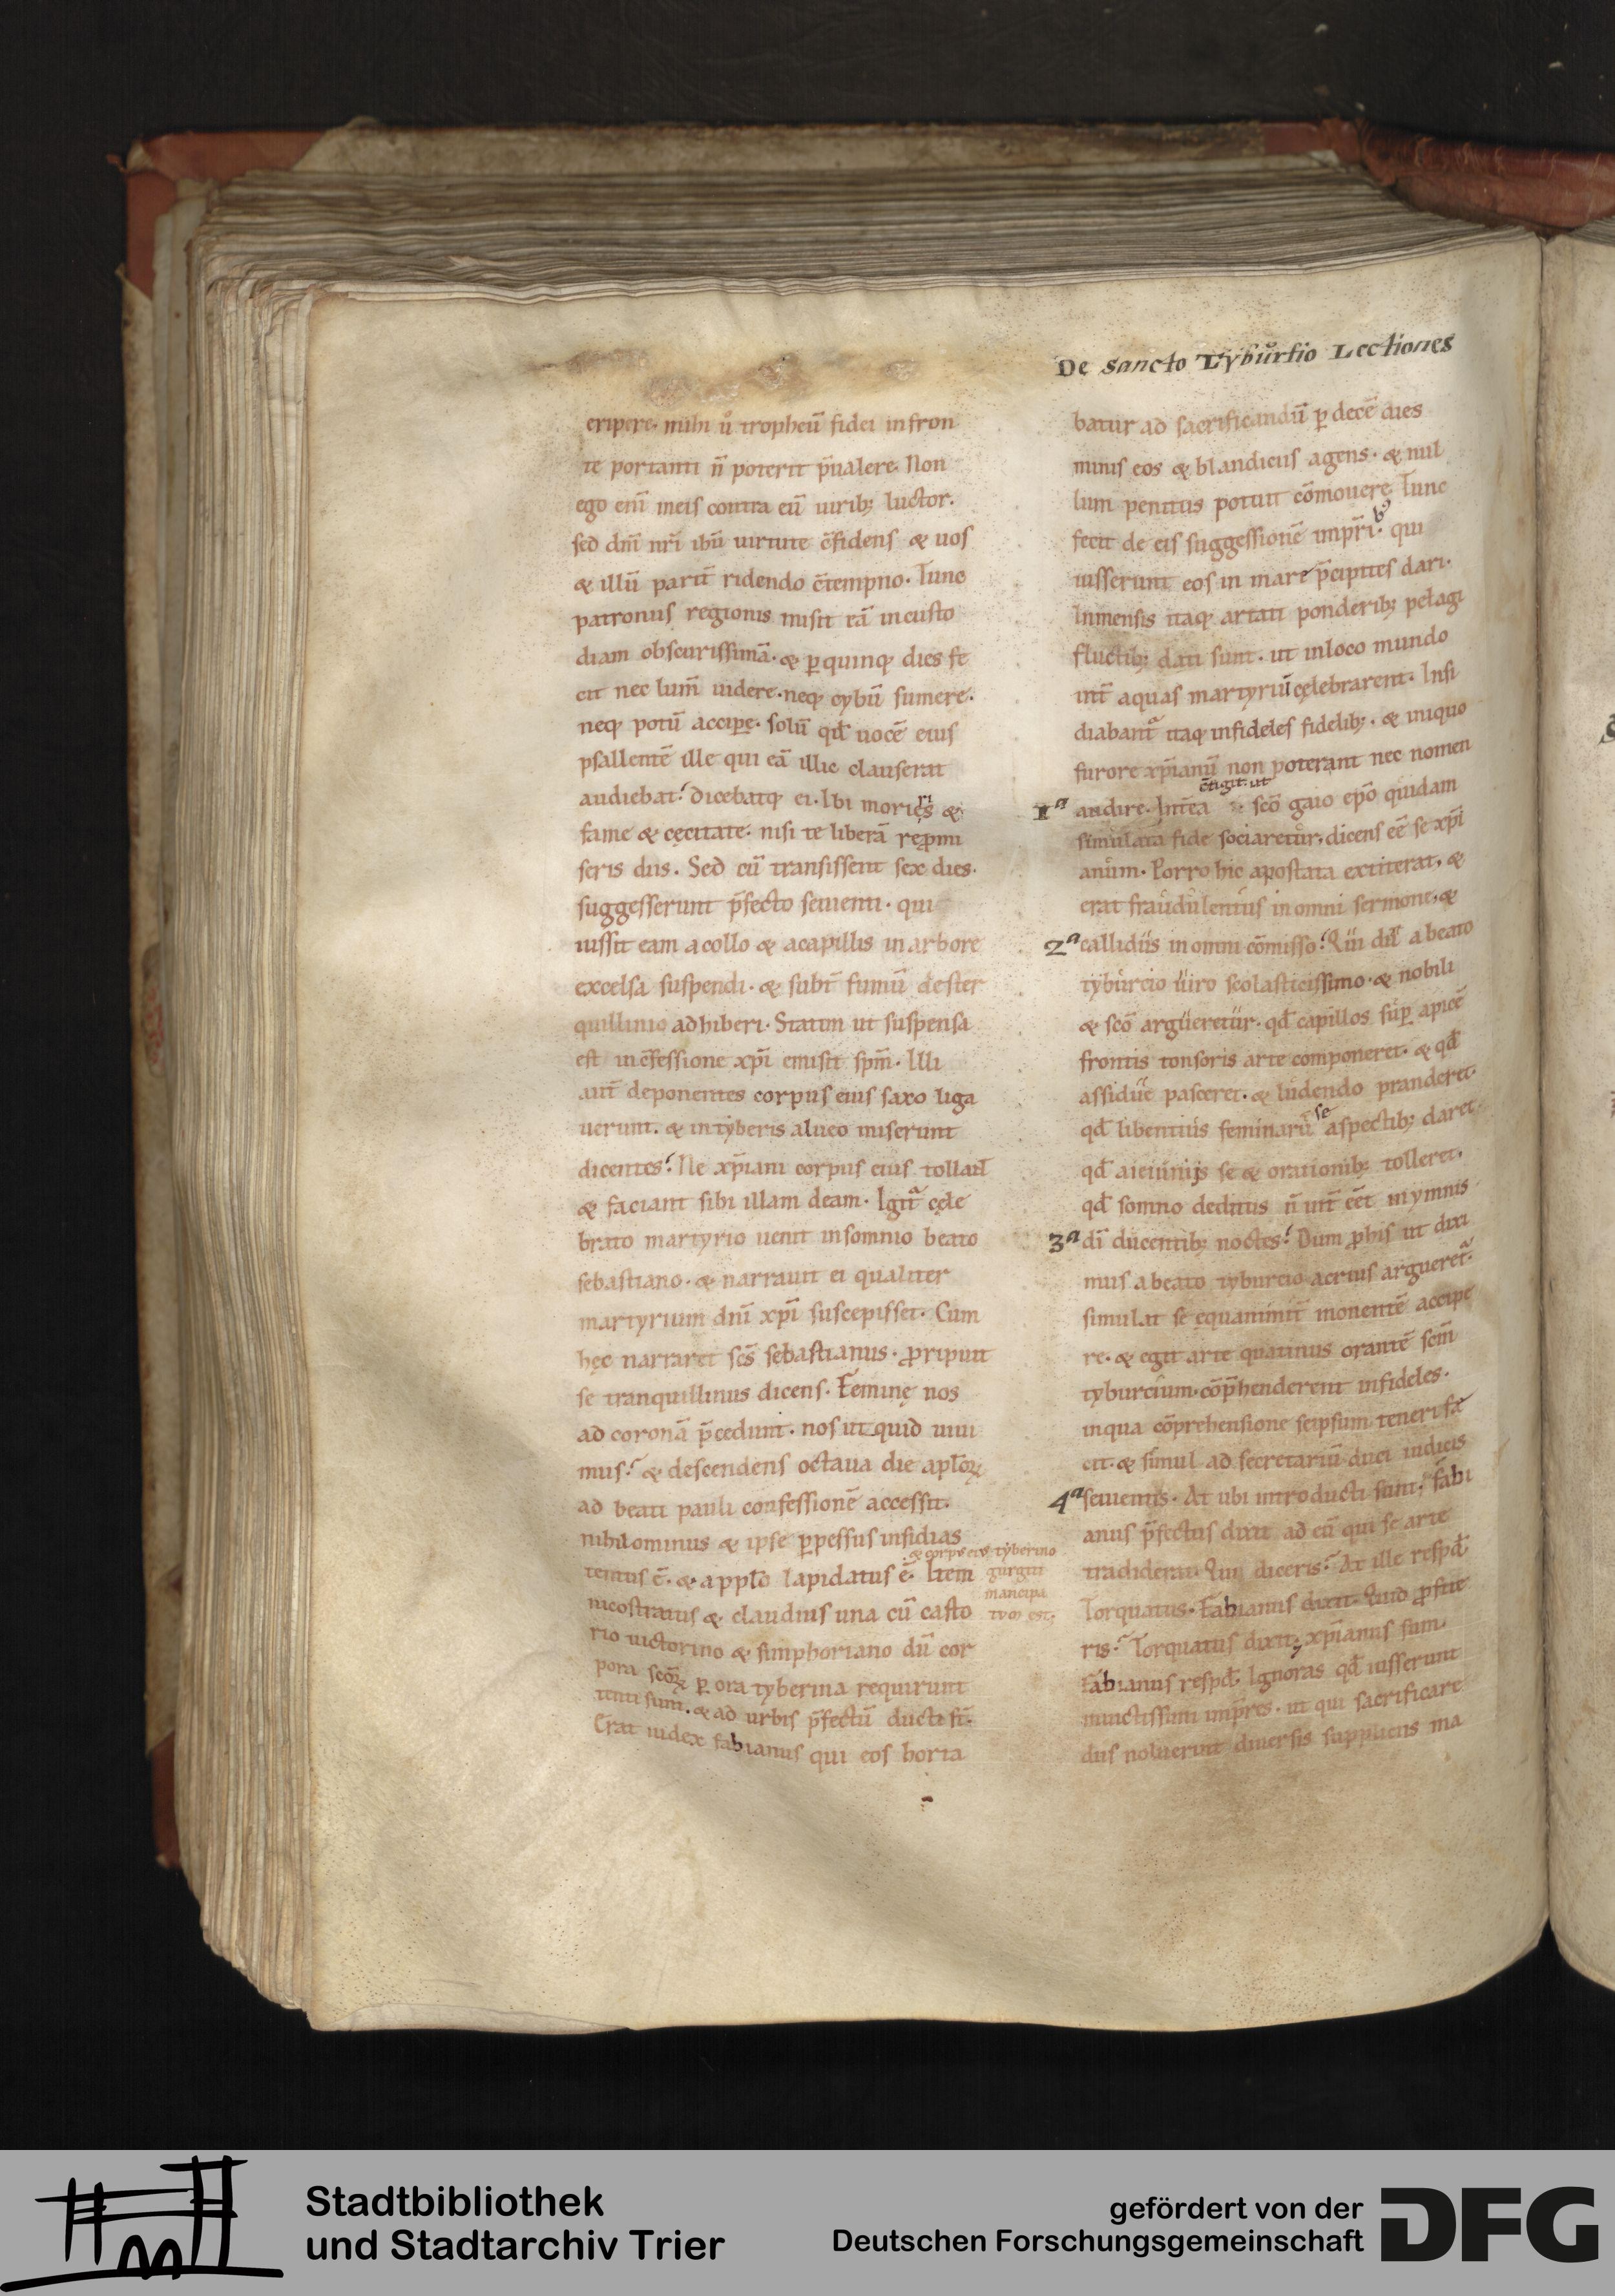 De sancto Tyburtio Lectiones
eripere. mihi u̇ tropheū fidei in fron
te portanti n̄ poterit p̄ualere. Non
ego eni̅ meis contra eū uirib; luctor.
sed dn̄i nr̄i ih̄u uirtute c̄fidens & uos
& illū parit̄ ridendo c̄tempno. Tunc
patronus regionis misit eā in custo
diam obscurissimā. & ꝑ quinq; dies fe
cit nec lum̄ uidere. neq; cybū sumere.
neq; potū accipe. solū qd̄ uocē eius
psallentē ille qui eā illic clauserat
audiebat. dicebatq; ei. Ibi morieris &
fame & cęcitate. nisi te liberā reꝓmi
seris diis. Sed cū transissent sex dies.
suggesserunt p̄fecto seuienti. qui
iussit eam a collo & a capillis in arbore
excelsa suspendi. & subt̄ fumū de ster
quilinio adhiberi. Statim ut suspensa
est in c̄fessione xp̄i emisit sp̄m. Illi
aut̄ deponentes corpus eius saxo liga
uerunt. & in tyberis alueo miserunt
dicentes. Ne xp̄iani corpus eius tollant
& faciant sibi illam deam. Igit̃ cęle
brato martyrio uenit in somnio beato
sebastiano. & narrauit ei qualiter
martyrium dn̄i xp̄i suscepisset. Cum
hęc narraret sc̄s sebastianus. ꝓripuit
se tranquillinus dicens. Feminę nos
ad coronā p̄cedunt. nos ut quid uiui
mus. & descendens octaua die apl̄oꝝ
ad beati pauli confessionē accessit.
nihilominus & ipse ꝑpessus insidias
tentus ē. & a pplo lapidatus ē. Item
& corpus eius tyberino
gurgiti
mancipa
tum est.
nicostratus & claudius una cū casto
rio uictorino & simphoriano dū cor
pora sc̄oꝝ ꝑ ora tyberina requirunt
tenti sunt. & ad urbis p̄fectū ducti st̄.
Erat iudex fabianus qui eos horta
batur ad sacrificandū ꝑ decē dies
minis eos & blandiciis agens. & nul
lum penitus potuit cōmouere. Tunc
fecit de eis suggessionē impr̄ib9. qui
iusserunt eos in mare p̄cipites dari.
Inmensis itaq; artati ponderib; pelagi
fluctib; dati sunt. ut in loco mundo
int̄ aquas martyriū cęlebrarent. Insi
diabant̃ itaq; infideles fidelib;. & iniquo
furore xp̄ianū non poterant nec nomen
1a audire. Int̄ea c̄tigit ut sc̄o gaio ep̄o quidam
simulata fide sociaretur, dicens eē se xp̄i
anum. Porro hic apostata extiterat, &
erat fraudulentus in omni sermone, &
2a callidus in omni cōmisso. Qui dū a beato
tyburcio uiro scolasticissimo & nobili
& sc̄o argueretur. qd̄ capillos suꝑ apicē
frontis tonsoris arte componeret. & qd̄
assidue pasceret. & ludendo pranderet.
qd̄ libentius feminarū se aspectib; daret.
qd̄ a ieiuniis se & orationib; tolleret.
qd̄ somno deditus n̄ int̄ eēt in ymnis
3a di̅ ducentib; noctes. Dum ꝓ his ut dixi
mus a beato tyburcio acrius argueret̃.
simulat se equanimit̄ monentē accipe
re. & egit arte quatinus orantē sc̄m
tyburcium. cōp̄henderent infideles.
in qua cōprehensione seipsum teneri fa
cit. & simul ad secretariū duci iudicis
4a seuientis. At ubi introducti sunt, fabi
anus p̄fectus dixit ad eū qui se arte
tradiderat. Qui diceris. At ille respd̄.
Torquatus. Fabianus dixit. Quid ꝓfite
ris. Torquatus dixit, xp̄ianus sum.
Fabianus respd̄. Ignoras qd̄ iusserunt
inuictissimi imp̄res. ut qui sacrificare
diis noluerint diuersis suppliciis ma
Stadtbibliothek
und Stadtarchiv Trier
gefördert von der
Deutschen Forschungsgemeinschaft
DFG